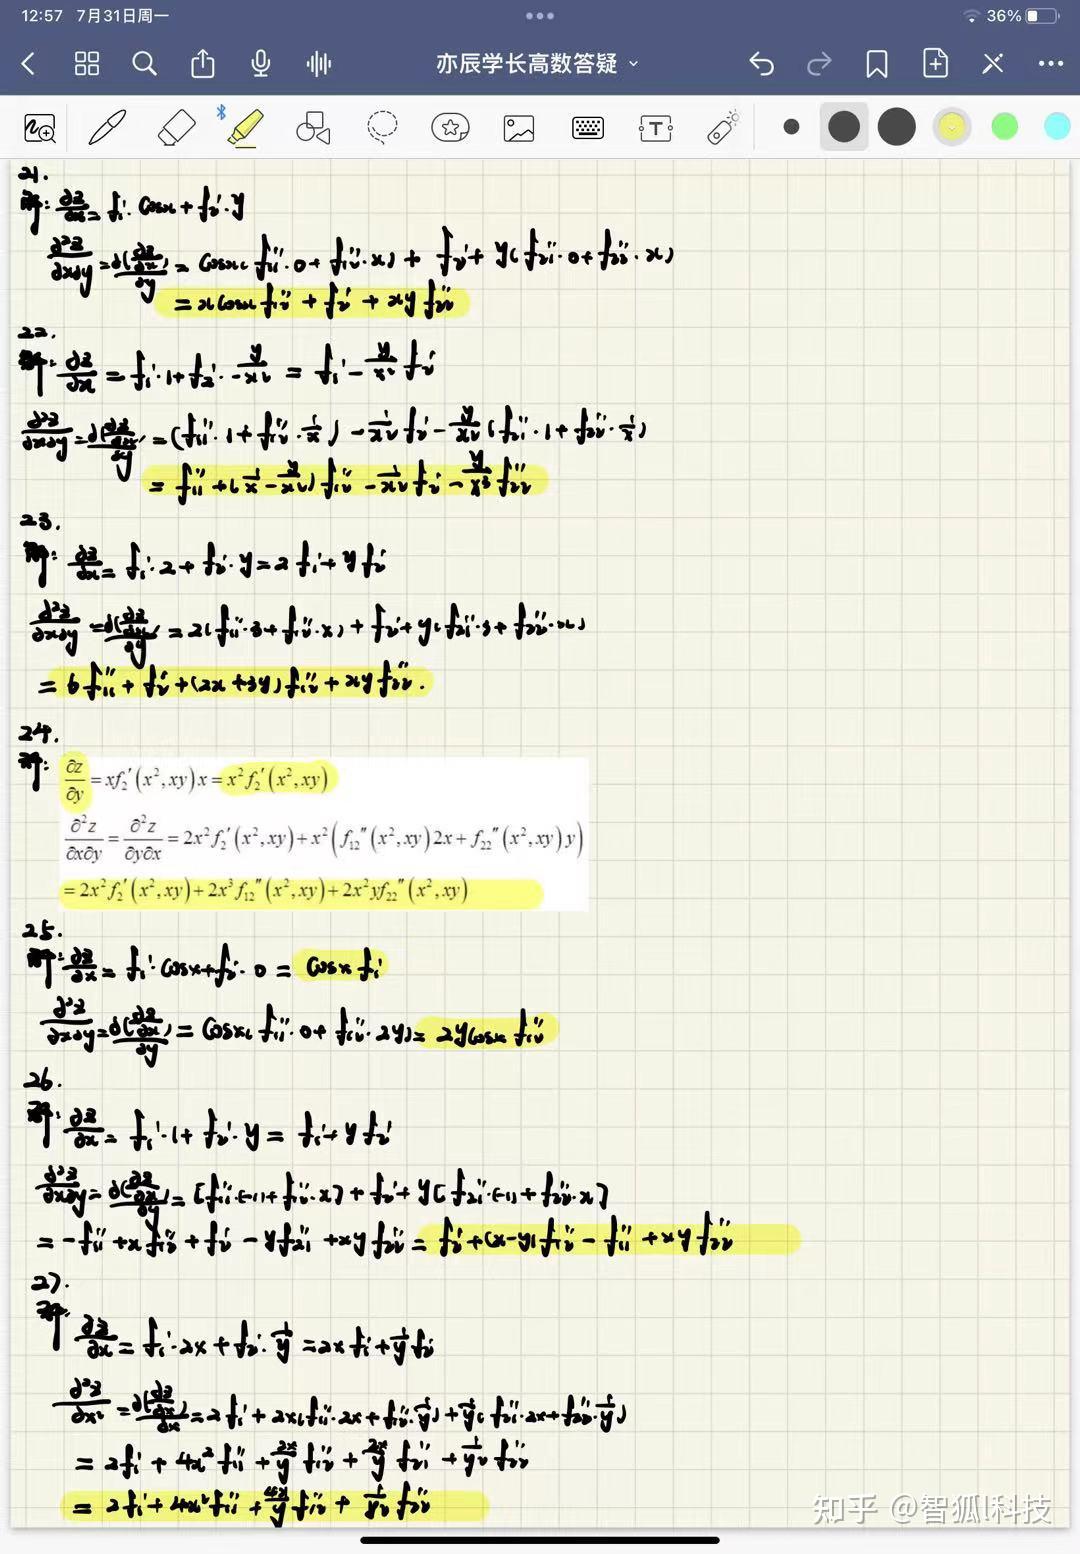 12:57 7月31日周一
36%
亦辰学长高数答疑
21.
解: ∂z/∂x = f₁′·cosx + f₂′·y
∂²z/∂x∂y = ∂(∂z/∂x)/∂y = cosx(f₁₁″·0 + f₁₂″·x) + f₂′ + y(f₂₁″·0 + f₂₂″·x)
= xcosx f₁₂″ + f₂′ + xy f₂₂″
22.
解: ∂z/∂x = f₁′·1 + f₂′·-y/x² = f₁′ - y/x² f₂′
∂²z/∂x∂y = ∂(∂z/∂x)/∂y = (f₁₁″·1 + f₁₂″·1/x) - 1/x² f₂′ - y/x² (f₂₁″·1 + f₂₂″·1/x)
= f₁₁″ + (1/x - y/x²) f₁₂″ - 1/x² f₂′ - y/x³ f₂₂″
23.
解: ∂z/∂x = f₁′·2 + f₂′·y = 2f₁′ + yf₂′
∂²z/∂x∂y = ∂(∂z/∂x)/∂y = 2(f₁₁″·3 + f₁₂″·x) + f₂′ + y(f₂₁″·3 + f₂₂″·x)
= 6f₁₁″ + f₂′ + (2x+3y)f₁₂″ + xy f₂₂″.
24.
解: ∂z/∂y = xf₂′(x²,xy)x = x²f₂′(x²,xy)
∂²z/∂x∂y = ∂²z/∂y∂x = 2x²f₂′(x²,xy) + x²(f₁₂″(x²,xy)2x + f₂₂″(x²,xy)y)
= 2x²f₂′(x²,xy) + 2x³f₁₂″(x²,xy) + 2x²yf₂₂″(x²,xy)
25.
解: ∂z/∂x = f₁′·cosx + f₂′·0 = cosx f₁′
∂²z/∂x∂y = ∂(∂z/∂x)/∂y = cosx(f₁₁″·0 + f₁₂″·2y) = 2ycosx f₁₂″
26.
解: ∂z/∂x = f₁′·1 + f₂′·y = f₁′ + yf₂′
∂²z/∂x∂y = ∂(∂z/∂x)/∂y = [f₁₁″·(-1) + f₁₂″·x] + f₂′ + y[f₂₁″·(-1) + f₂₂″·x]
= -f₁₁″ + xf₁₂″ + f₂′ - yf₂₁″ + xyf₂₂″ = f₂′ + (x-y)f₁₂″ - f₁₁″ + xyf₂₂″
27.
解: ∂z/∂x = f₁′·2x + f₂′·1/y = 2xf₁′ + 1/y f₂′
∂²z/∂x² = ∂(∂z/∂x)/∂x = 2f₁′ + 2x(f₁₁″·2x + f₁₂″·1/y) + 1/y(f₂₁″·2x + f₂₂″·1/y)
= 2f₁′ + 4x²f₁₁″ + 2x/y f₁₂″ + 2x/y f₂₁″ + 1/y² f₂₂″
= 2f₁′ + 4x²f₁₁″ + 4x/y f₁₂″ + 1/y² f₂₂″
知乎 @智狐l科技